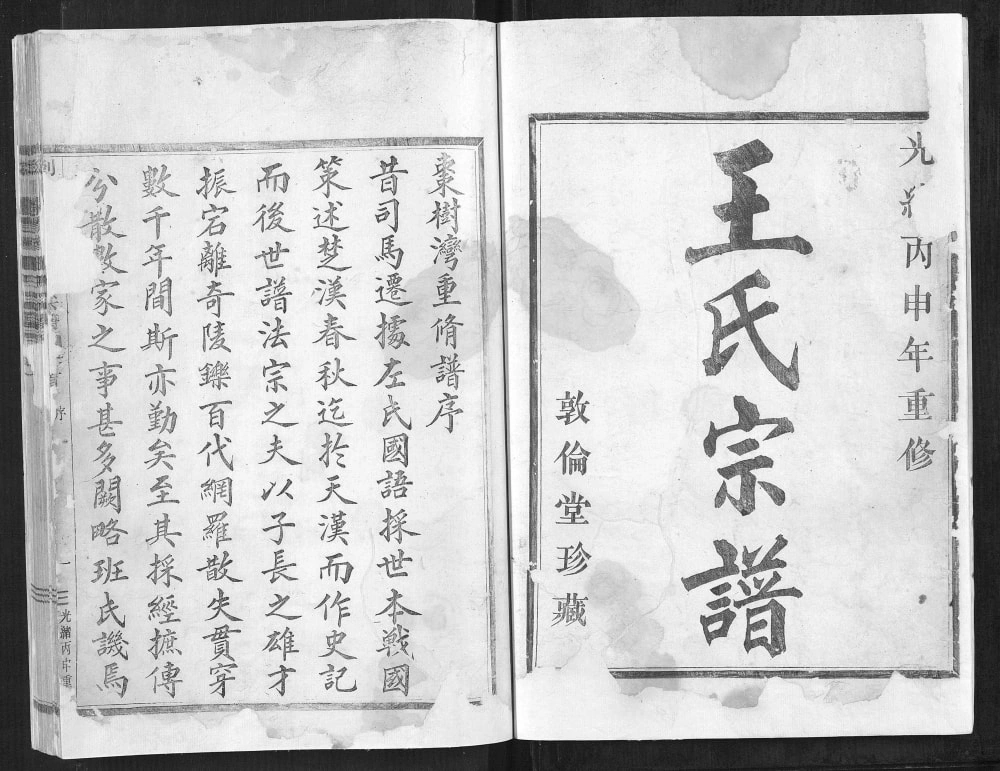 光緒丙申年重修
王氏宗譜
敦倫堂珍藏
棗樹灣重脩譜序
昔司馬遷據左氏國語採世本戰國
策述楚漢春秋迄於天漢而作史記
而後世譜法宗之夫以子長之雄才
振宕離奇陵鑠百代網羅散失貫穿
數千年間斯亦勤矣至其採經摭傳
分散數家之事甚多闕略班氏譏焉
序
一
光緒丙申重